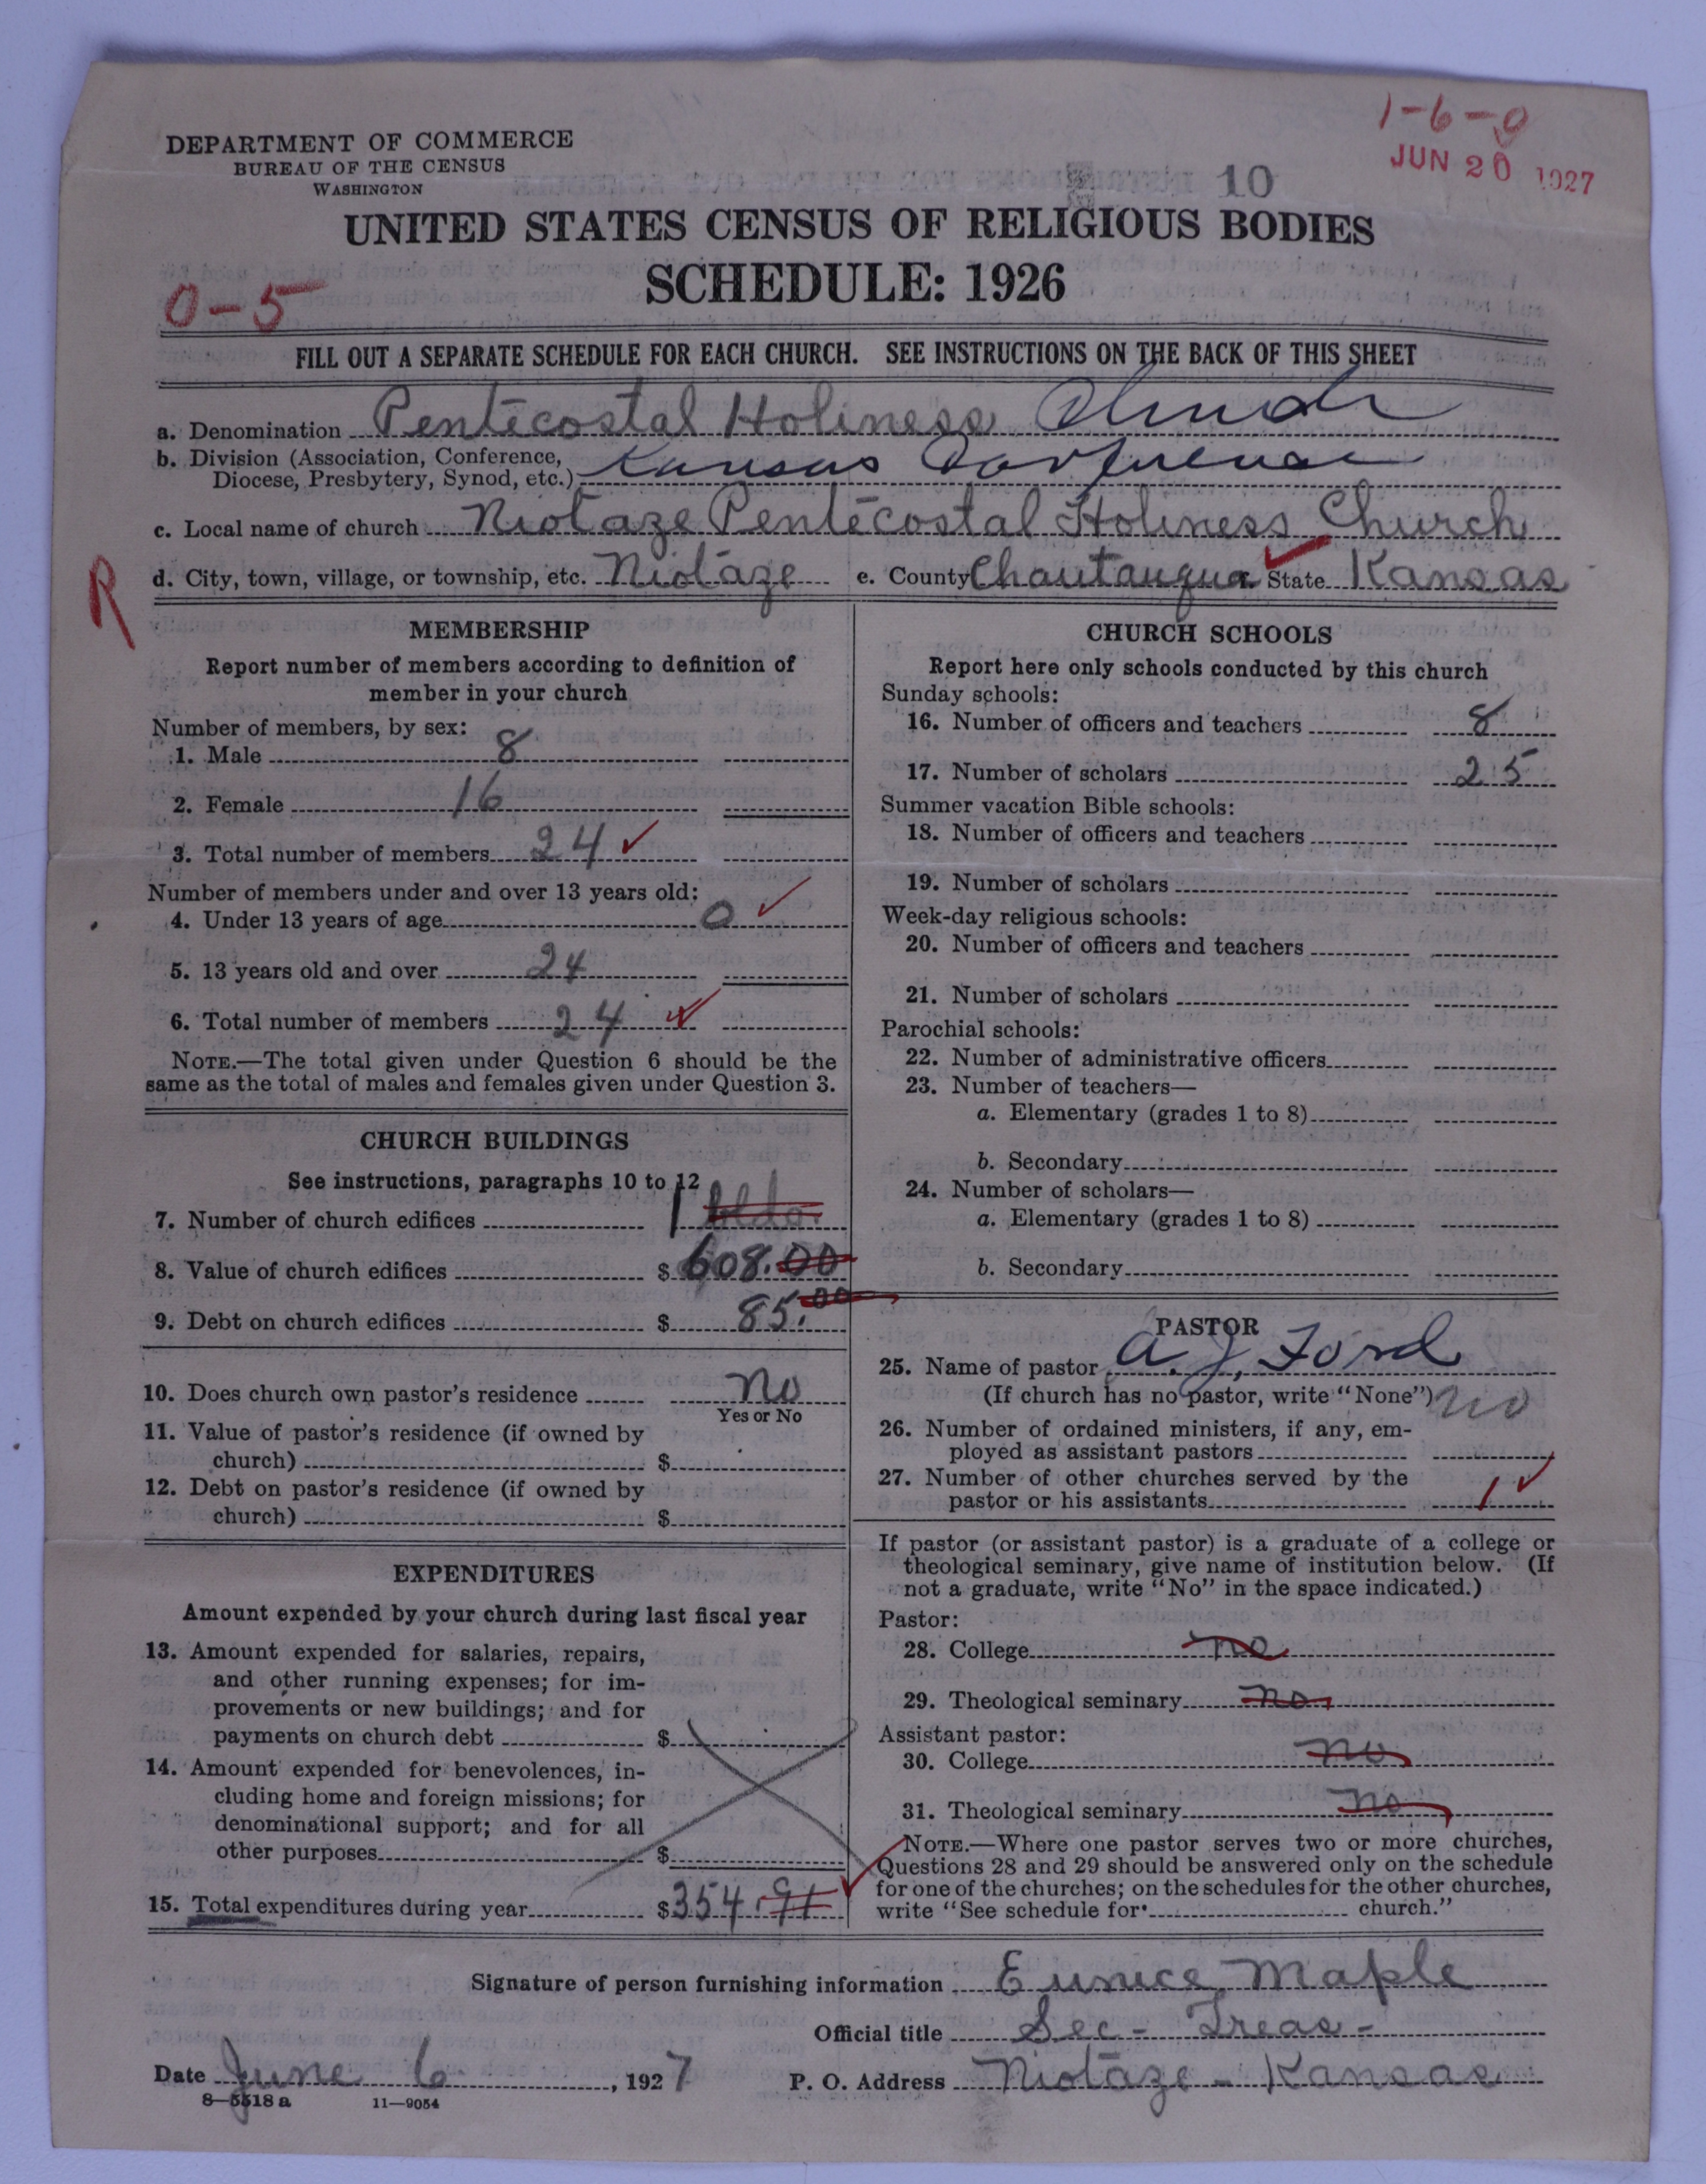 1-6-0
JUN 20 1927
DEPARTMENT OF COMMERCE
BUREAU OF THE CENSUS
WASHINGTON
10
UNITED STATES CENSUS OF RELIGIOUS BODIES
SCHEDULE: 1926
0-5
FILL OUT A SEPARATE SCHEDULE FOR EACH CHURCH. SEE INSTRUCTIONS ON THE BACK OF THIS SHEET
a. Denomination Pentecostal Holiness Church
b. Division (Association, Conference,
Diocese, Presbytery, Synod, etc.) Kansas Conference
c. Local name of church Niotaze Pentecostal Holiness Church
R
d. City, town, village, or township, etc. Niotaze e. County Chautauqua State Kansas
MEMBERSHIP
Report number of members according to definition of
member in your church
Number of members, by sex:
1. Male 8
2. Female 16
3. Total number of members 24
Number of members under and over 13 years old:
4. Under 13 years of age 0
5. 13 years old and over 24
6. Total number of members 24
NOTE.—The total given under Question 6 should be the
same as the total of males and females given under Question 3.
CHURCH BUILDINGS
See instructions, paragraphs 10 to 12
7. Number of church edifices 1 bldg.
8. Value of church edifices $ 608.00
9. Debt on church edifices $ 85.00
10. Does church own pastor's residence No
Yes or No
11. Value of pastor's residence (if owned by
church) $
12. Debt on pastor's residence (if owned by
church) $
EXPENDITURES
Amount expended by your church during last fiscal year
13. Amount expended for salaries, repairs,
and other running expenses; for im-
provements or new buildings; and for
payments on church debt $
14. Amount expended for benevolences, in-
cluding home and foreign missions; for
denominational support; and for all
other purposes $
15. Total expenditures during year $354.91
CHURCH SCHOOLS
Report here only schools conducted by this church
Sunday schools:
16. Number of officers and teachers 8
17. Number of scholars 25
Summer vacation Bible schools:
18. Number of officers and teachers
19. Number of scholars
Week-day religious schools:
20. Number of officers and teachers
21. Number of scholars
Parochial schools:
22. Number of administrative officers
23. Number of teachers—
a. Elementary (grades 1 to 8)
b. Secondary
24. Number of scholars—
a. Elementary (grades 1 to 8)
b. Secondary
PASTOR
25. Name of pastor A. J. Ford
(If church has no pastor, write "None") no
26. Number of ordained ministers, if any, em-
ployed as assistant pastors
27. Number of other churches served by the
pastor or his assistants 1
If pastor (or assistant pastor) is a graduate of a college or
theological seminary, give name of institution below. (If
not a graduate, write "No" in the space indicated.)
Pastor:
28. College no
29. Theological seminary no
Assistant pastor:
30. College no
31. Theological seminary no
NOTE.—Where one pastor serves two or more churches,
Questions 28 and 29 should be answered only on the schedule
for one of the churches; on the schedules for the other churches,
write "See schedule for church."
Signature of person furnishing information Eunice Maple
Official title Sec - Treas -
Date June 6, 1927 P. O. Address Niotaze - Kansas
8—5518 a 11—9054